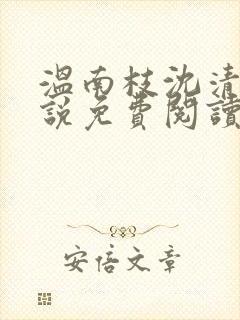 溫南枝沈清
說免費閱讀
安信文章